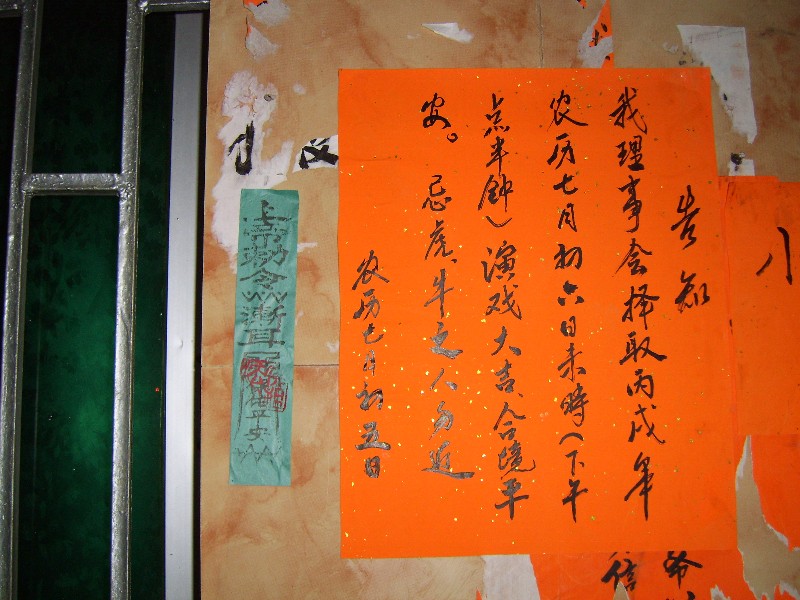 告知
我理事会择取丙戌年
农历七月初六日未時(下午
点半鈡)演戏大吉、合境平
安。忌虎、牛之人勿近
农历七月初五日
上帝勅令
平安
信